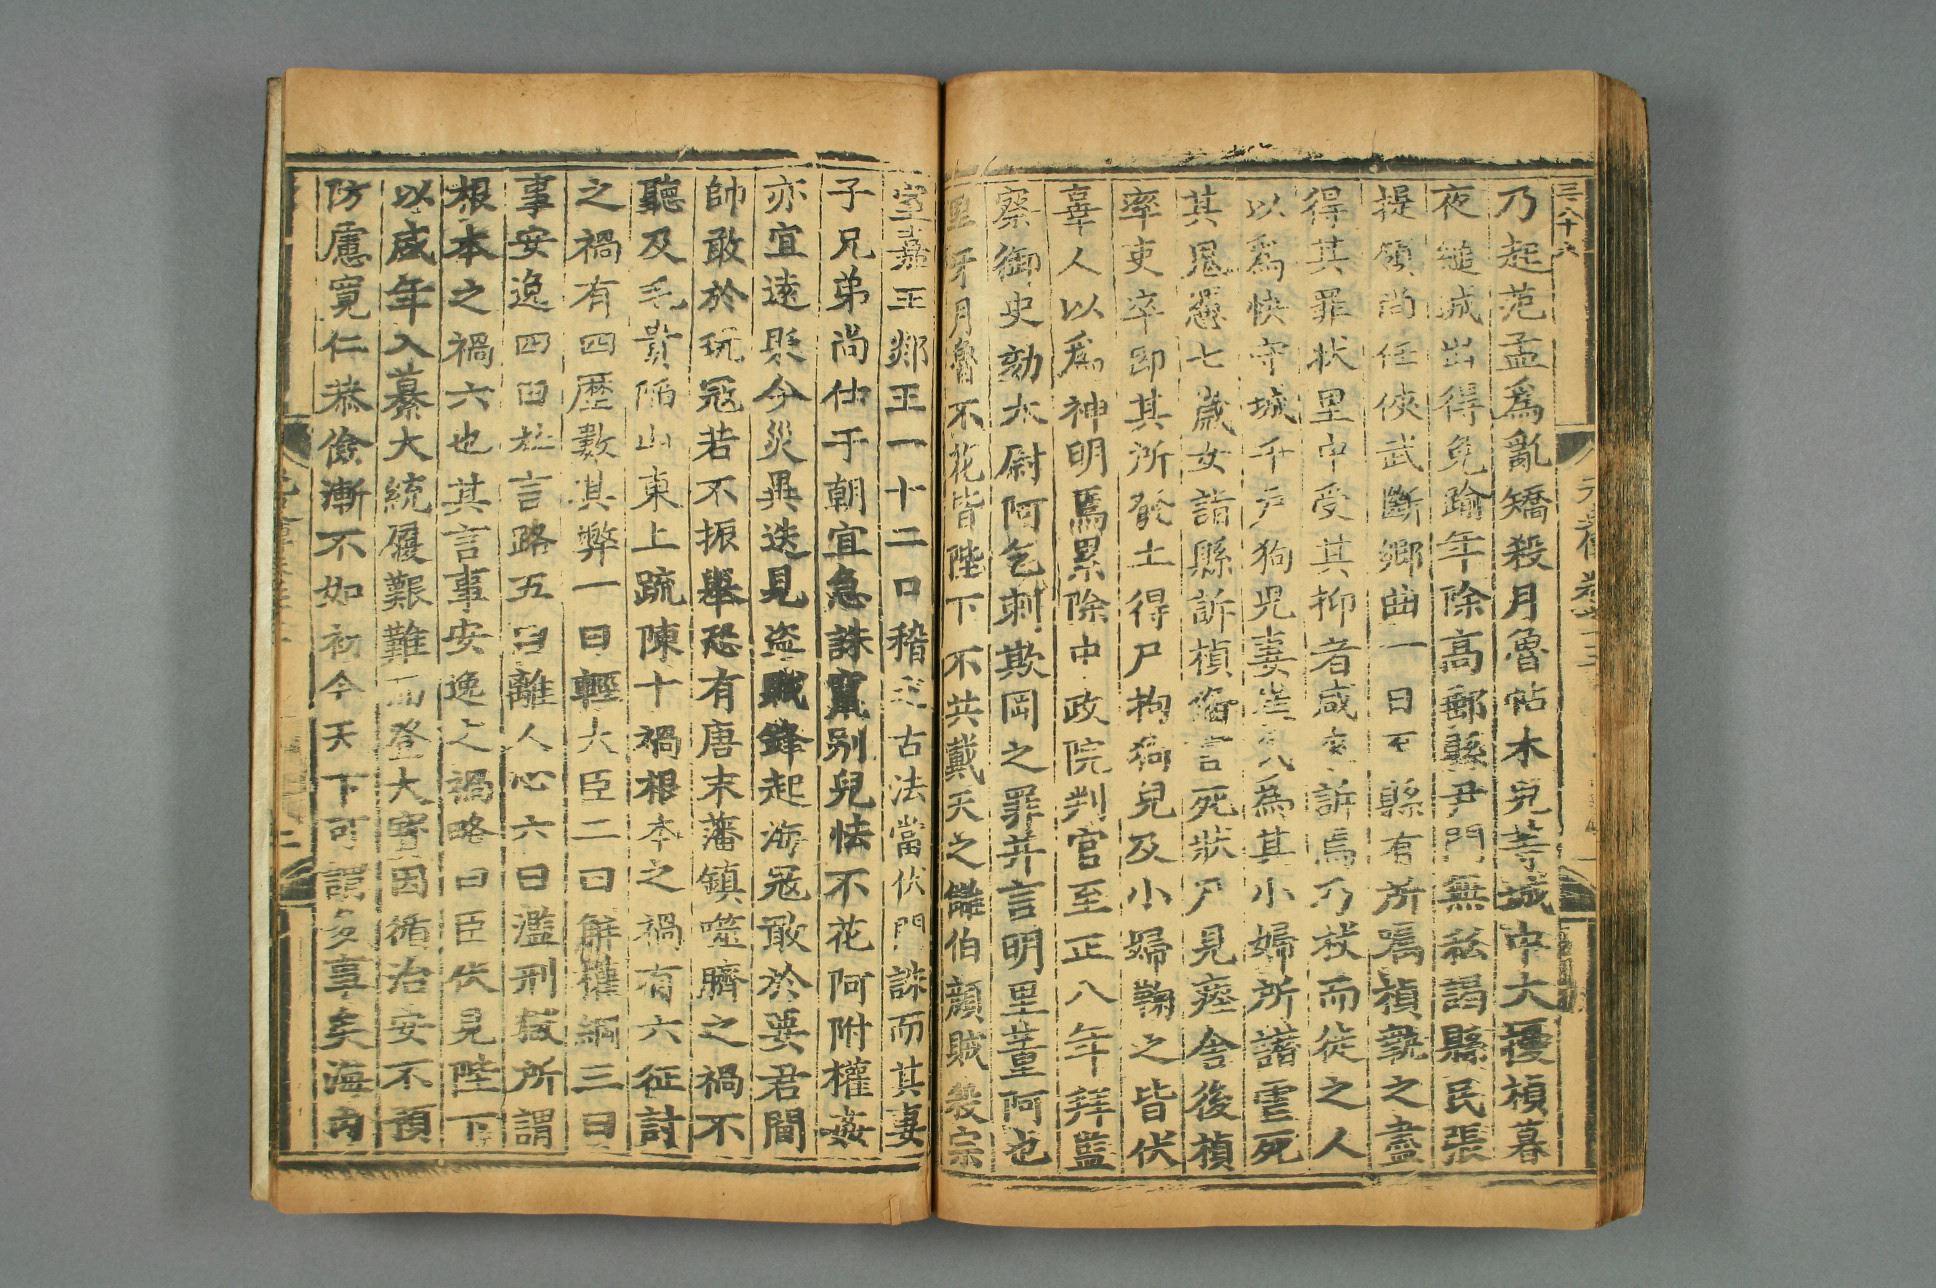 乃起范孟爲亂矯殺月魯帖木兒等城中大擾禎暮
夜縋城出得免踰年除高郵縣尹門無私謁縣民張
提領尚任俠武斷鄉曲一日至縣有所囑禎執之盡
得其罪狀里中受其抑者咸來訴焉乃杖而徙之人
以爲快守城千戶狗兒妻崔氏爲其小婦所譖虐死
其鬼憑七歲女詣縣訴禎備言死狀尸見瘞舍後禎
率吏卒卽其所發土得尸拘狗兒及小婦鞫之皆伏
辜人以爲神明焉累除中政院判官至正八年拜監
察御史劾太尉阿乞剌欺罔之罪并言明里董阿也
里牙月魯不花皆陛下不共戴天之讎伯顏賊殺宗
室嘉王郯王一十二口稽之古法當伏門誅而其妻
子兄弟尚仕于朝宜急誅竄别兒怯不花阿附權姦
亦宜遠貶今災異迭見盜賊鋒起海寇敢於要君閫
帥敢於玩寇若不振舉恐有唐末藩鎮噬臍之禍不
聽及毛貴陷山東上疏陳十禍根本之禍有六征討
之禍有四歷數其弊一曰輕大臣二曰解權綱三曰
事安逸四曰杜言路五曰離人心六曰濫刑獄所謂
根本之禍六也其言事安逸之禍略曰臣伏見陛下
以盛年入纂大統履艱難而登大寶因循治安不預
防慮寬仁恭儉漸不如初今天下可謂多事矣海內
三八十六
元史傳卷七十三